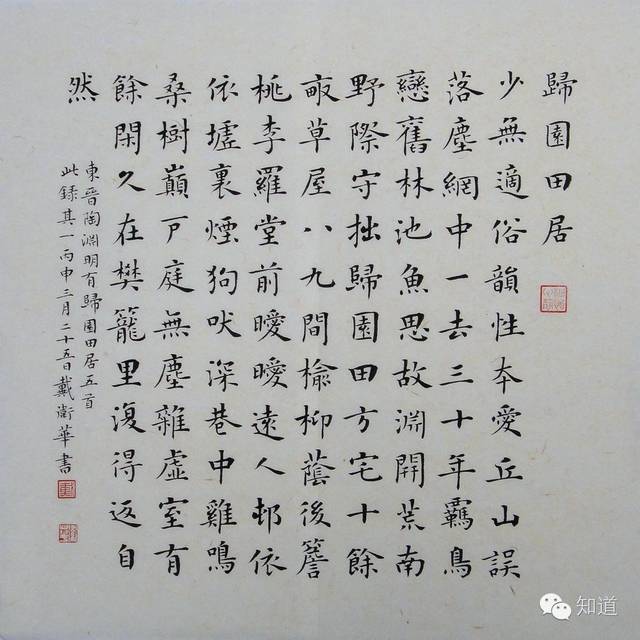 歸園田居
少無適俗韻性夲愛丘山誤
落塵網中一去三十年羈鳥
戀舊林池魚思故淵開荒南
野際守拙歸園田方宅十餘
畝草屋八九間榆柳蔭後簷
桃李羅堂前曖曖遠人邨依
依墟裏煙狗吠深巷中雞鳴
桑樹巔戶庭無塵雜虛室有
餘閑久在樊籠里復得返自
然
東晉陶淵明有歸園田居五首
此録其一丙申三月二十五日戴衛華書
知道